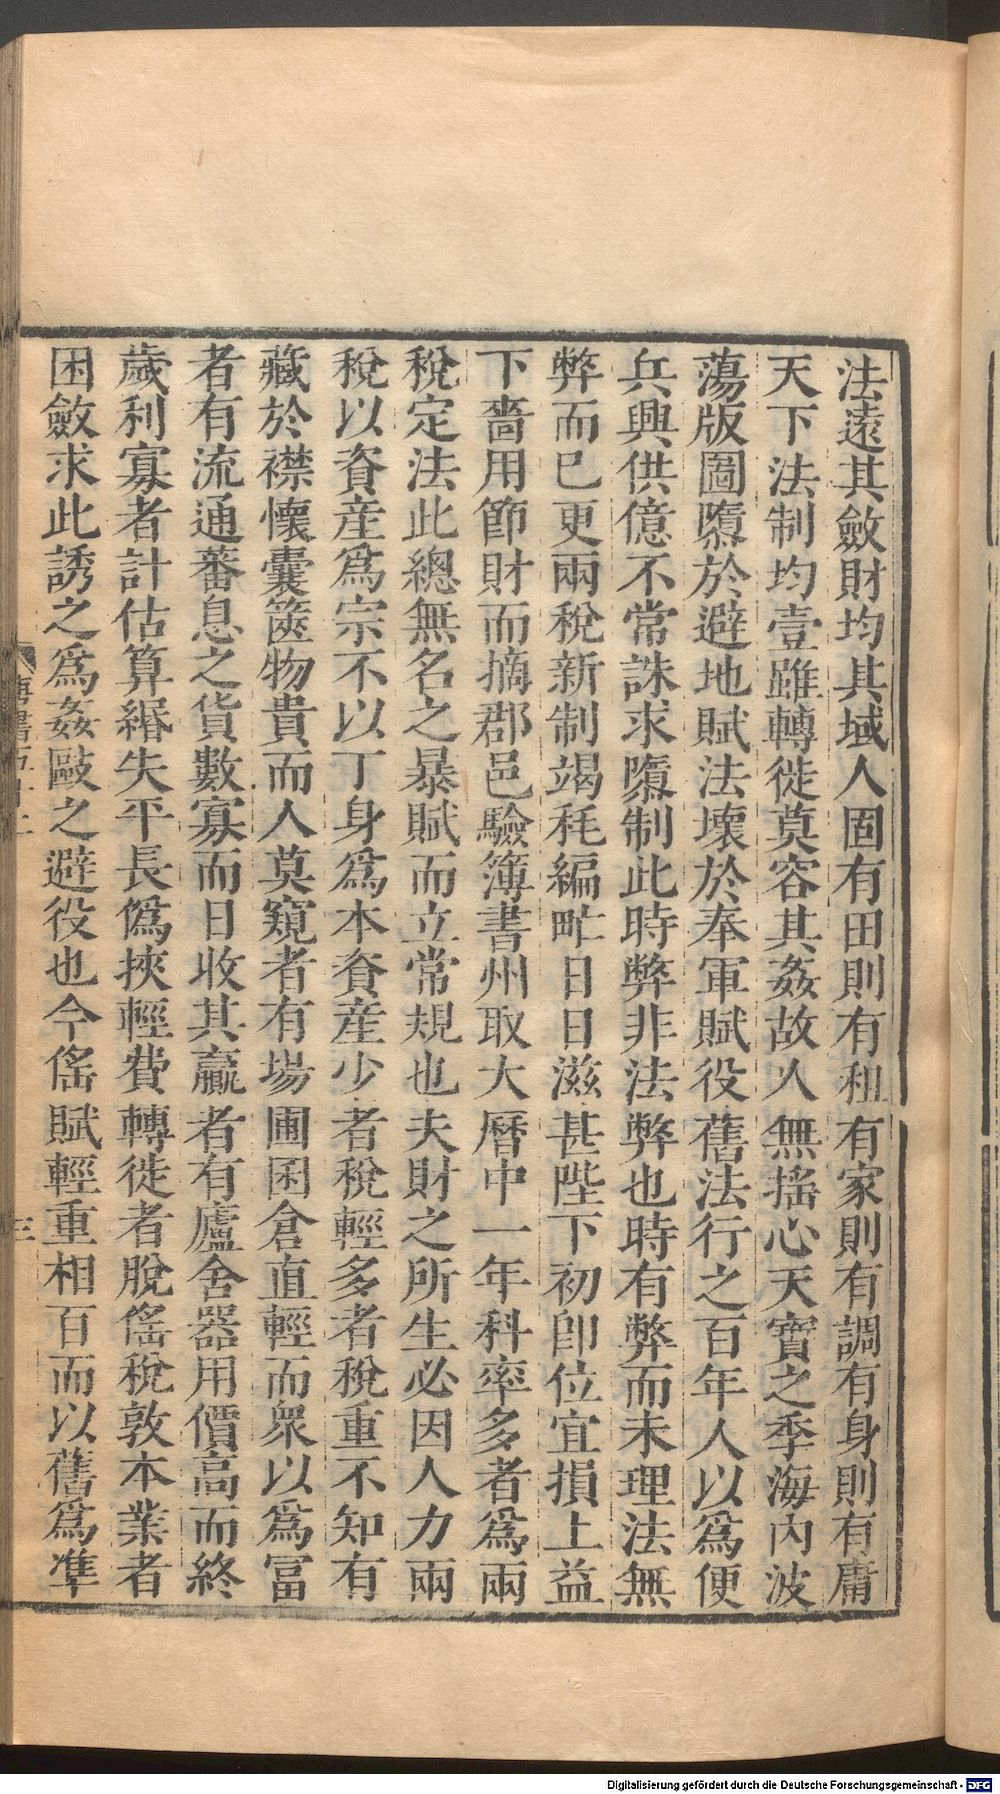 法遠其斂財均其域人固有田則有租有家則有調有身則有庸
天下法制均壹雖轉徙莫容其姦故人無搖心天寶之季海內波
蕩版圖隳於避地賦法壞於奉軍賦役舊法行之百年人以爲便
兵興供億不常誅求隳制此時弊非法弊也時有弊而未理法無
弊而已更兩稅新制竭耗編甿日日滋甚陛下初卽位宜損上益
下嗇用節財而摘郡邑驗簿書州取大曆中一年科率多者爲兩
稅定法此總無名之暴賦而立常規也夫財之所生必因人力兩
稅以資産爲宗不以丁身爲本資産少者稅輕多者稅重不知有
藏於襟懷囊篋物貴而人莫窺者有場圃囷倉直輕而衆以爲冨
者有流通蕃息之貨數寡而日收其贏者有廬舍器用價高而終
歲利寡者計估算緡失平長僞挾輕費轉徙者脫傜稅敦本業者
困斂求此誘之爲姦敺之避役也今傜賦輕重相百而以舊爲準
唐書五十二
三
Digitalisierung gefördert durch die Deutsche Forschungsgemeinschaft - DFG